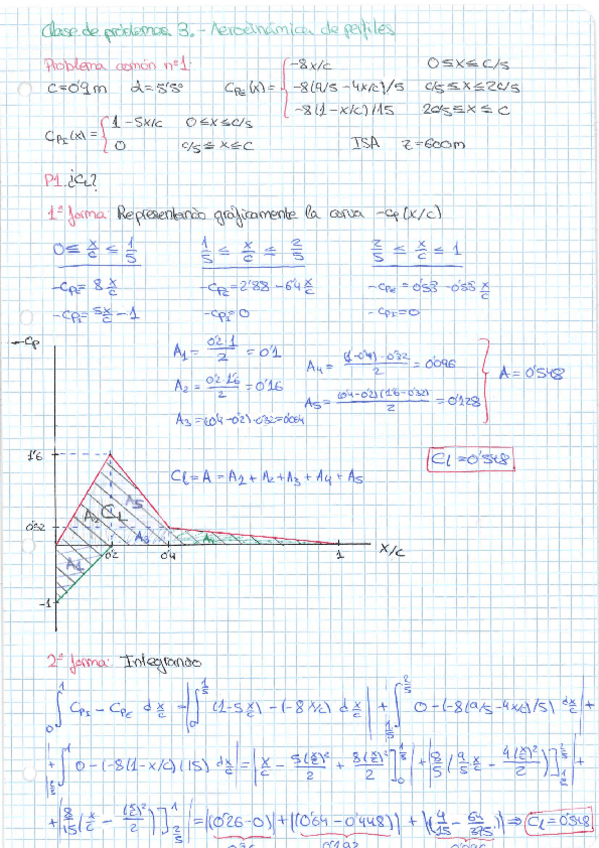 Clase de problemas 3.- Aerodinámica de perfiles
Problema común nº1:
C=0'9m α=5'5° CPE(x)= { -8x/c 0≤x≤c/5
-8(9/5-4x/c)/5 c/5≤x≤2c/5
-8(1-x/c)/15 2c/5≤x≤c
CPI(x)= { 1-5x/c 0≤x≤c/5
0 c/5≤x≤c
ISA z=600m
P1. ¿CL?
1ª forma: Representando gráficamente la curva -Cp(x/c)
0≤ x/c ≤ 1/5 1/5 ≤ x/c ≤ 2/5 2/5 ≤ x/c ≤ 1
-CPE= 8 x/c -CPE=2'88-6'4 x/c -CPE=0'53-0'53 x/c
-CPI= 5x/c -1 -CPI=0 -CPI=0
-Cp
A1= 0'2·1/2 =0'1
A2= 0'2·1'6/2 =0'16
A3=(0'4-0'2)·0'32=0'064
A4= (1-0'4)·0'32/2 =0'096
A5= (0'4-0'2)(1'6-0'32)/2 =0'128
A=0'548
Cl=0'548
Cl=A=A1+A2+A3+A4+A5
1'6
0'32
-1
A2 CL A5
A3 A4
A1
0'2 0'4 1 x/c
2ª forma: Integrando
∫₀¹ CPI-CPE d x/c = |∫₀^(1/5) (1-5 x/c)-(-8 x/c) d x/c| + |∫_(1/5)^(2/5) 0-(-8(9/5-4x/c)/5) d x/c| +
+|∫_(2/5)^1 0-(-8(1-x/c)/15) d x/c| = |x/c - 5(x/c)²/2 + 8(x/c)²/2]₀^(1/5)| + |8/5(9/5 x/c - 4(x/c)²/2)]_(1/5)^(2/5)| +
+|8/15(x/c - (x/c)²/2)]_(2/5)^1| = |(0'26-0)|+|(0'64-0'448)| + |(4/15 - 64/375)| ⇒ Cl=0'548